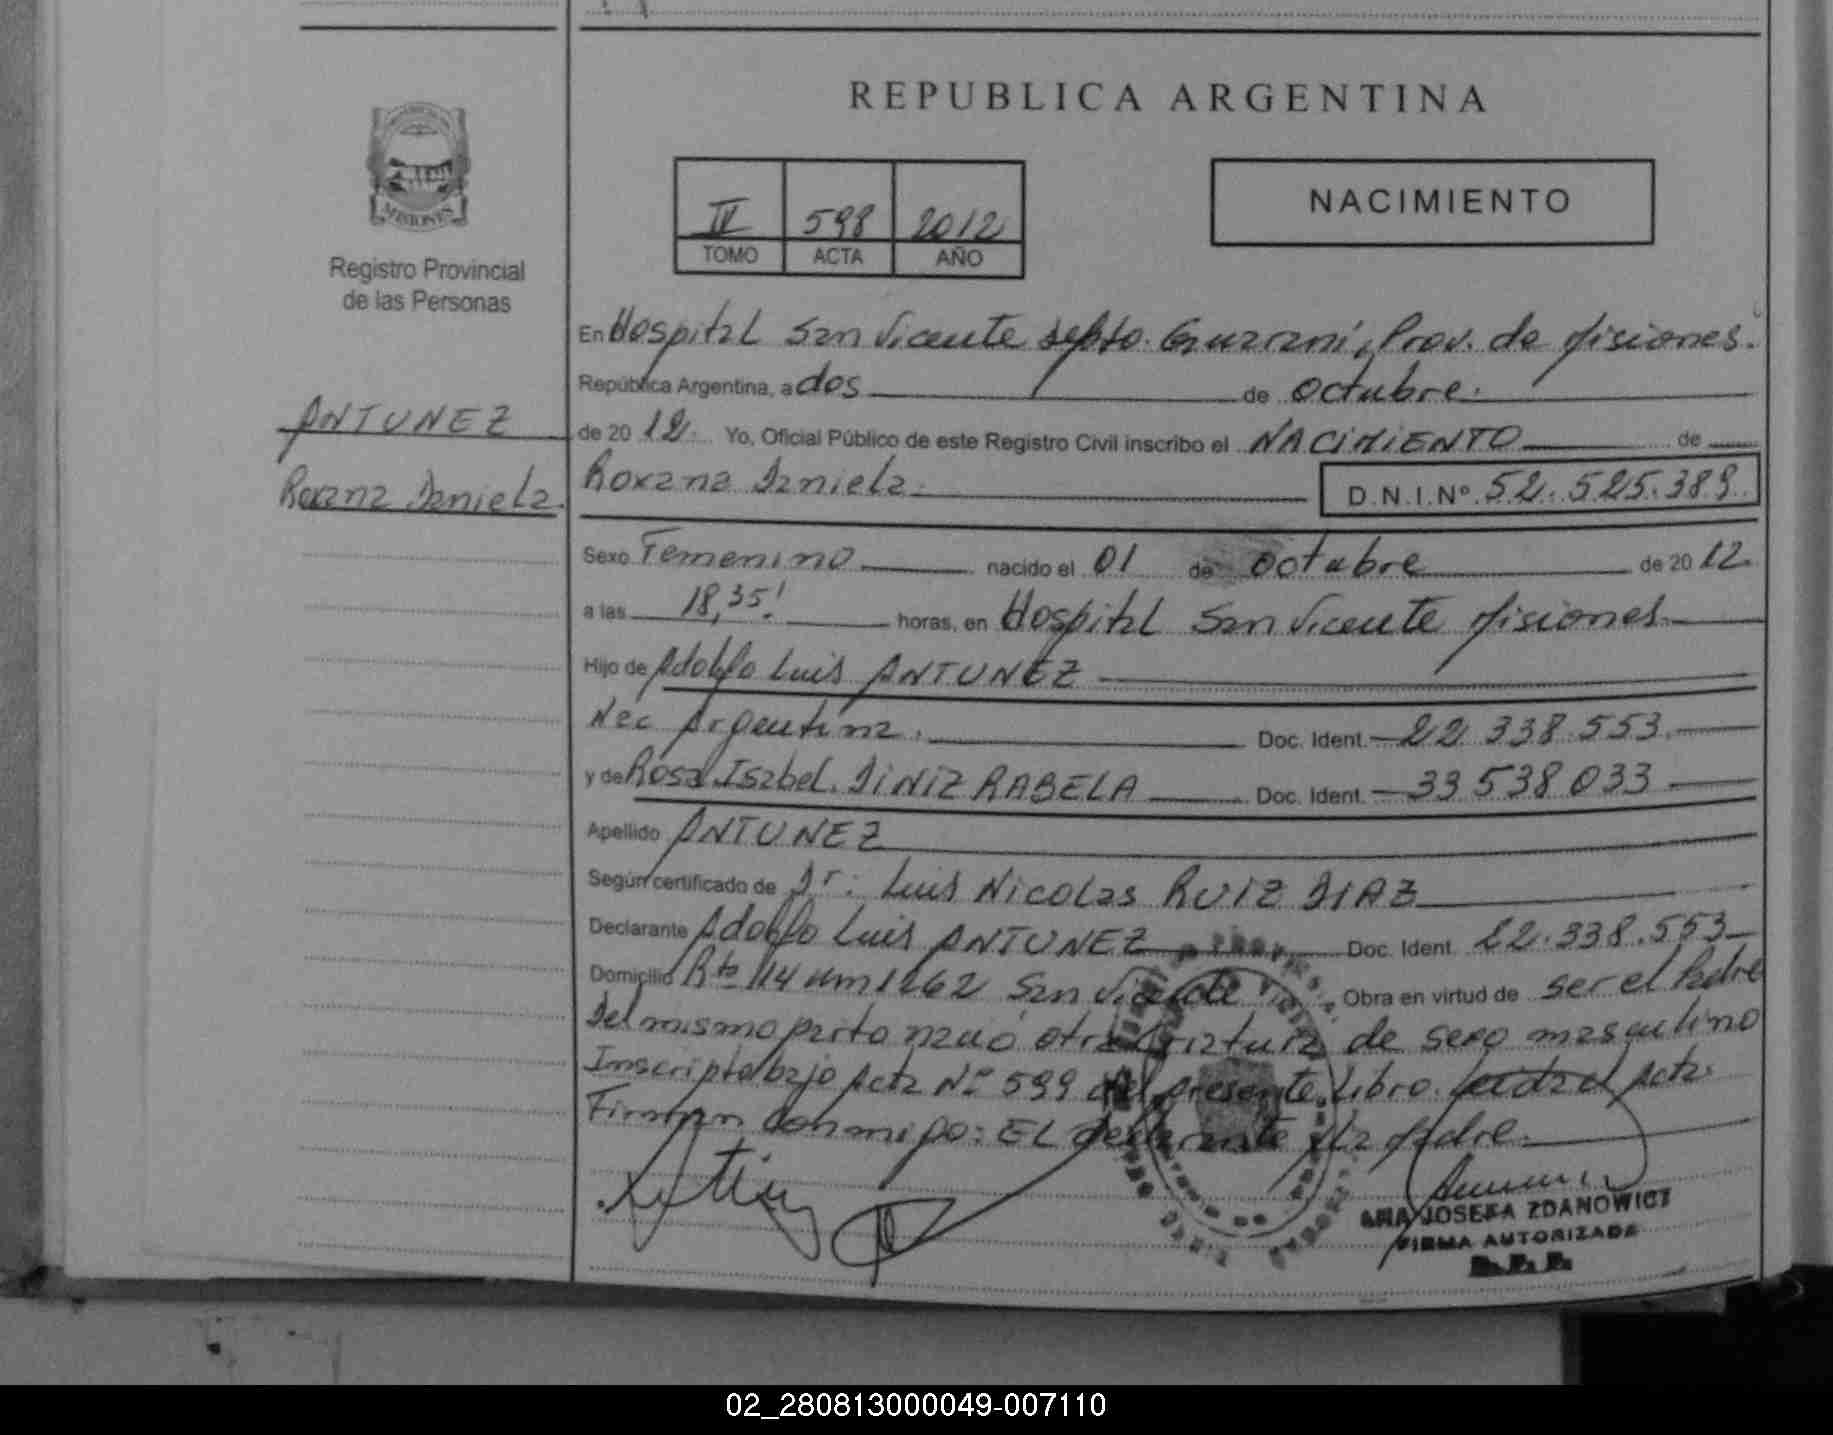 REPUBLICA ARGENTINA
MISIONES
Registro Provincial
de las Personas
IV 598 2012
TOMO ACTA AÑO
NACIMIENTO
En Hospital San Vicente Depto. Guaraní, Prov. de Misiones.
República Argentina, a dos de octubre.
ANTUNEZ
Roxana Daniela.
de 20 12. Yo, Oficial Público de este Registro Civil inscribo el NACIMIENTO de
Roxana Daniela. D.N.I.Nº 52.525.389.
Sexo Femenino nacido el 01 de octubre de 20 12.
a las 18,35' horas, en Hospital San Vicente Misiones.
Hijo de Adolfo Luis ANTUNEZ
Nac Argentina. Doc. Ident. 22 338.553.
y de Rosa Isabel. DINIZ RABELA Doc. Ident. 33 538 033
Apellido ANTUNEZ
Según certificado de Dr: Luis Nicolas RUIZ DIAZ
Declarante Adolfo Luis ANTUNEZ Doc. Ident. 22.338.553
Domicilio Rta 14 Km 1262 San Vicente Obra en virtud de ser el Padre
Del mismo parto nació otra criatura de sexo masculino
Inscripta bajo Acta Nº 599 del presente Libro. Leida el Acta.
Firman conmigo: EL declarante y la Madre.
ANA JOSEFA ZDANOWICZ
FIRMA AUTORIZADA
02_280813000049-007110